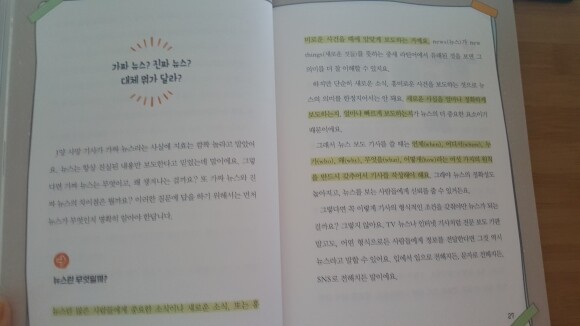 가짜 뉴스? 진짜 뉴스?
대체 뭐가 달라?
망 식당 기사가 가짜 뉴스라는 사실에 지호는 깜짝 놀라고 말았어
요. 뉴스는 항상 진실된 내용만 보도한다고 믿었는데 말이에요. 그렇
다면 가짜 뉴스는 무엇이고, 왜 생겨나는 걸까요? 또 가짜 뉴스와 진
짜 뉴스의 차이점은 뭘까요? 이러한 질문에 답을 하기 위해서는 먼저
뉴스가 무엇인지 명확히 알아야 한답니다.
뉴스란 무엇일까?
뉴스란 많은 사람들에게 중요한 소식이나 새로운 소식, 또는 흥
미로운 사건을 빠르게 보도하는 거예요. news(뉴스)가 new
things(새로운 것들)를 뜻하는 중세 라틴어에서 유래된 것을 보면 그
의미를 더 잘 이해할 수 있지요.
하지만 단순히 새로운 소식, 흥미로운 사건을 보도하는 것으로 뉴
스의 의미를 한정지어서는 안 돼요. 새로운 사실을 얼마나 정확하게
보도하는지, 얼마나 빠르게 보도하는지가 뉴스의 더 중요한 요소이기
때문이에요.
그래서 뉴스 보도 기사를 쓸 때는 언제(when), 어디서(where), 누
가(who), 왜(why), 무엇을(what), 어떻게(how)라는 여섯 가지의 원칙
을 반드시 갖추어서 기사를 작성해야 해요. 그래야 뉴스의 정확성도
높아지고, 뉴스를 보는 사람들에게 신뢰를 줄 수 있거든요.
그렇다면 꼭 이렇게 기사의 형식적인 조건을 갖춰야만 뉴스가 되는
걸까요? 그렇지 않아요. TV 뉴스나 인터넷 기사처럼 전문 보도 기관
말고도, 어떤 형식으로든 사람들에게 정보를 전달한다면 그것 역시
뉴스라고 말할 수 있어요. 입에서 입으로 전해지든, 문자로 전해지든,
SNS로 전해지든 말이에요.
21